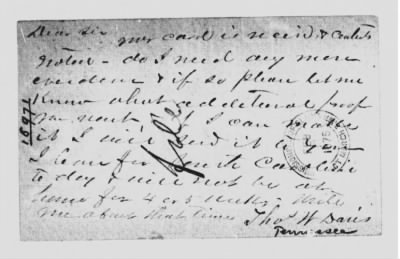 Dear Sir your card is recd & contents
noted - do I need any more
evidence & if so please let me
Know what additional proof
you want If I can make
it I will send it to you
I leave for South Carolina
to day & will not be at
home for 4 or 5 weeks - Write
me about that time Thos W Davis
Tennessee
file